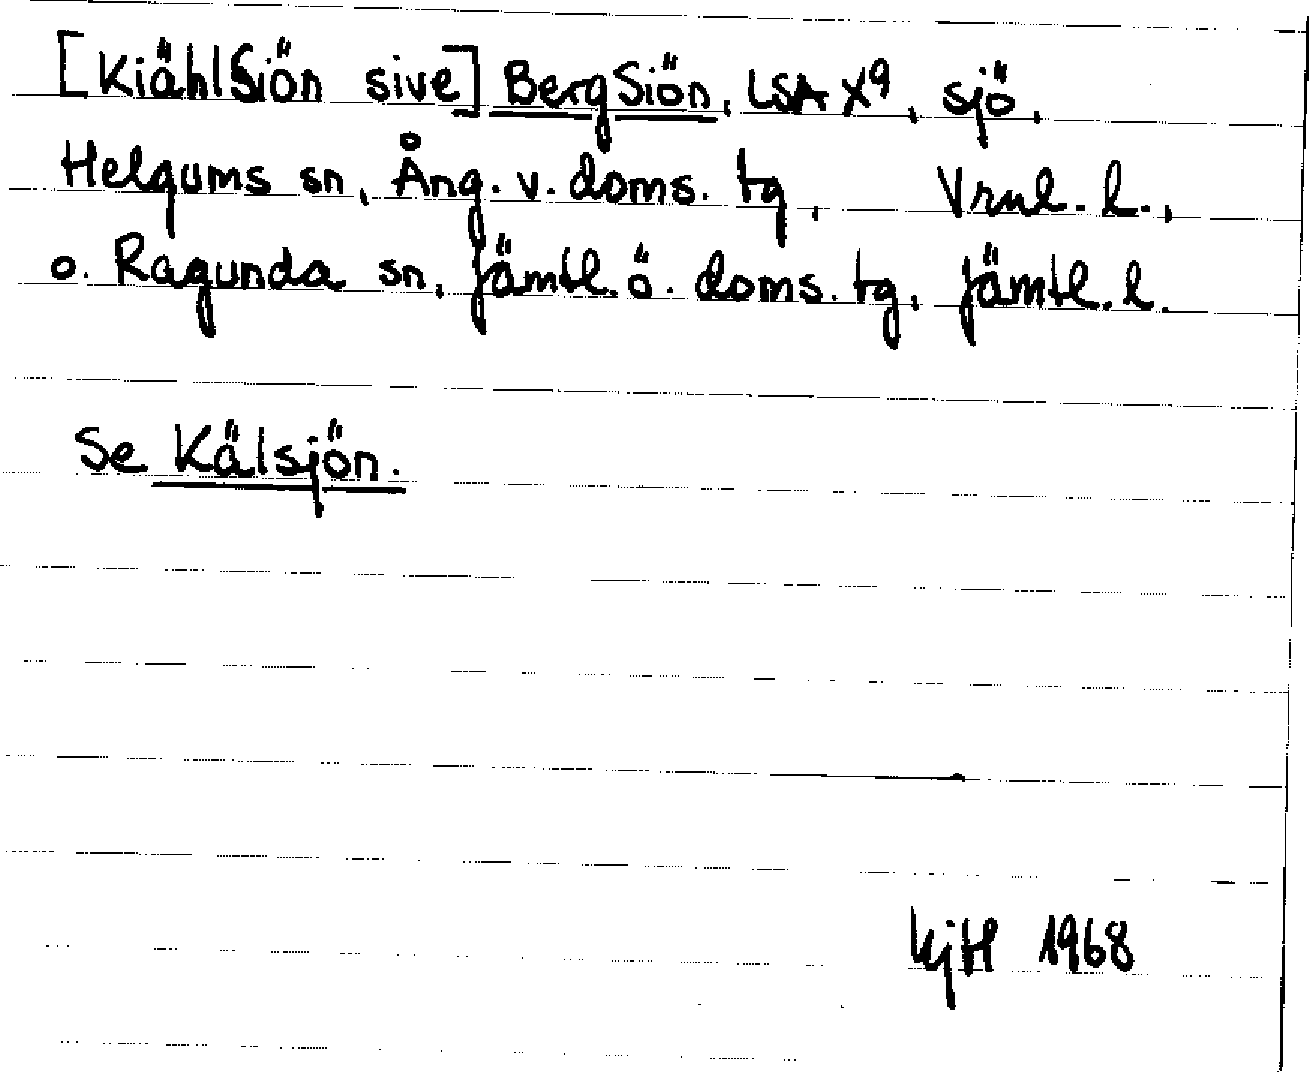 [KiählSiön sive] BergSiön, LSA X9, sjö,
Helgums sn, Ång. v. doms. tg, Vrnl. l.,
o. Ragunda sn, Jämtl. ö. doms. tg, Jämtl. l.
Se Kälsjön.
KjH 1968